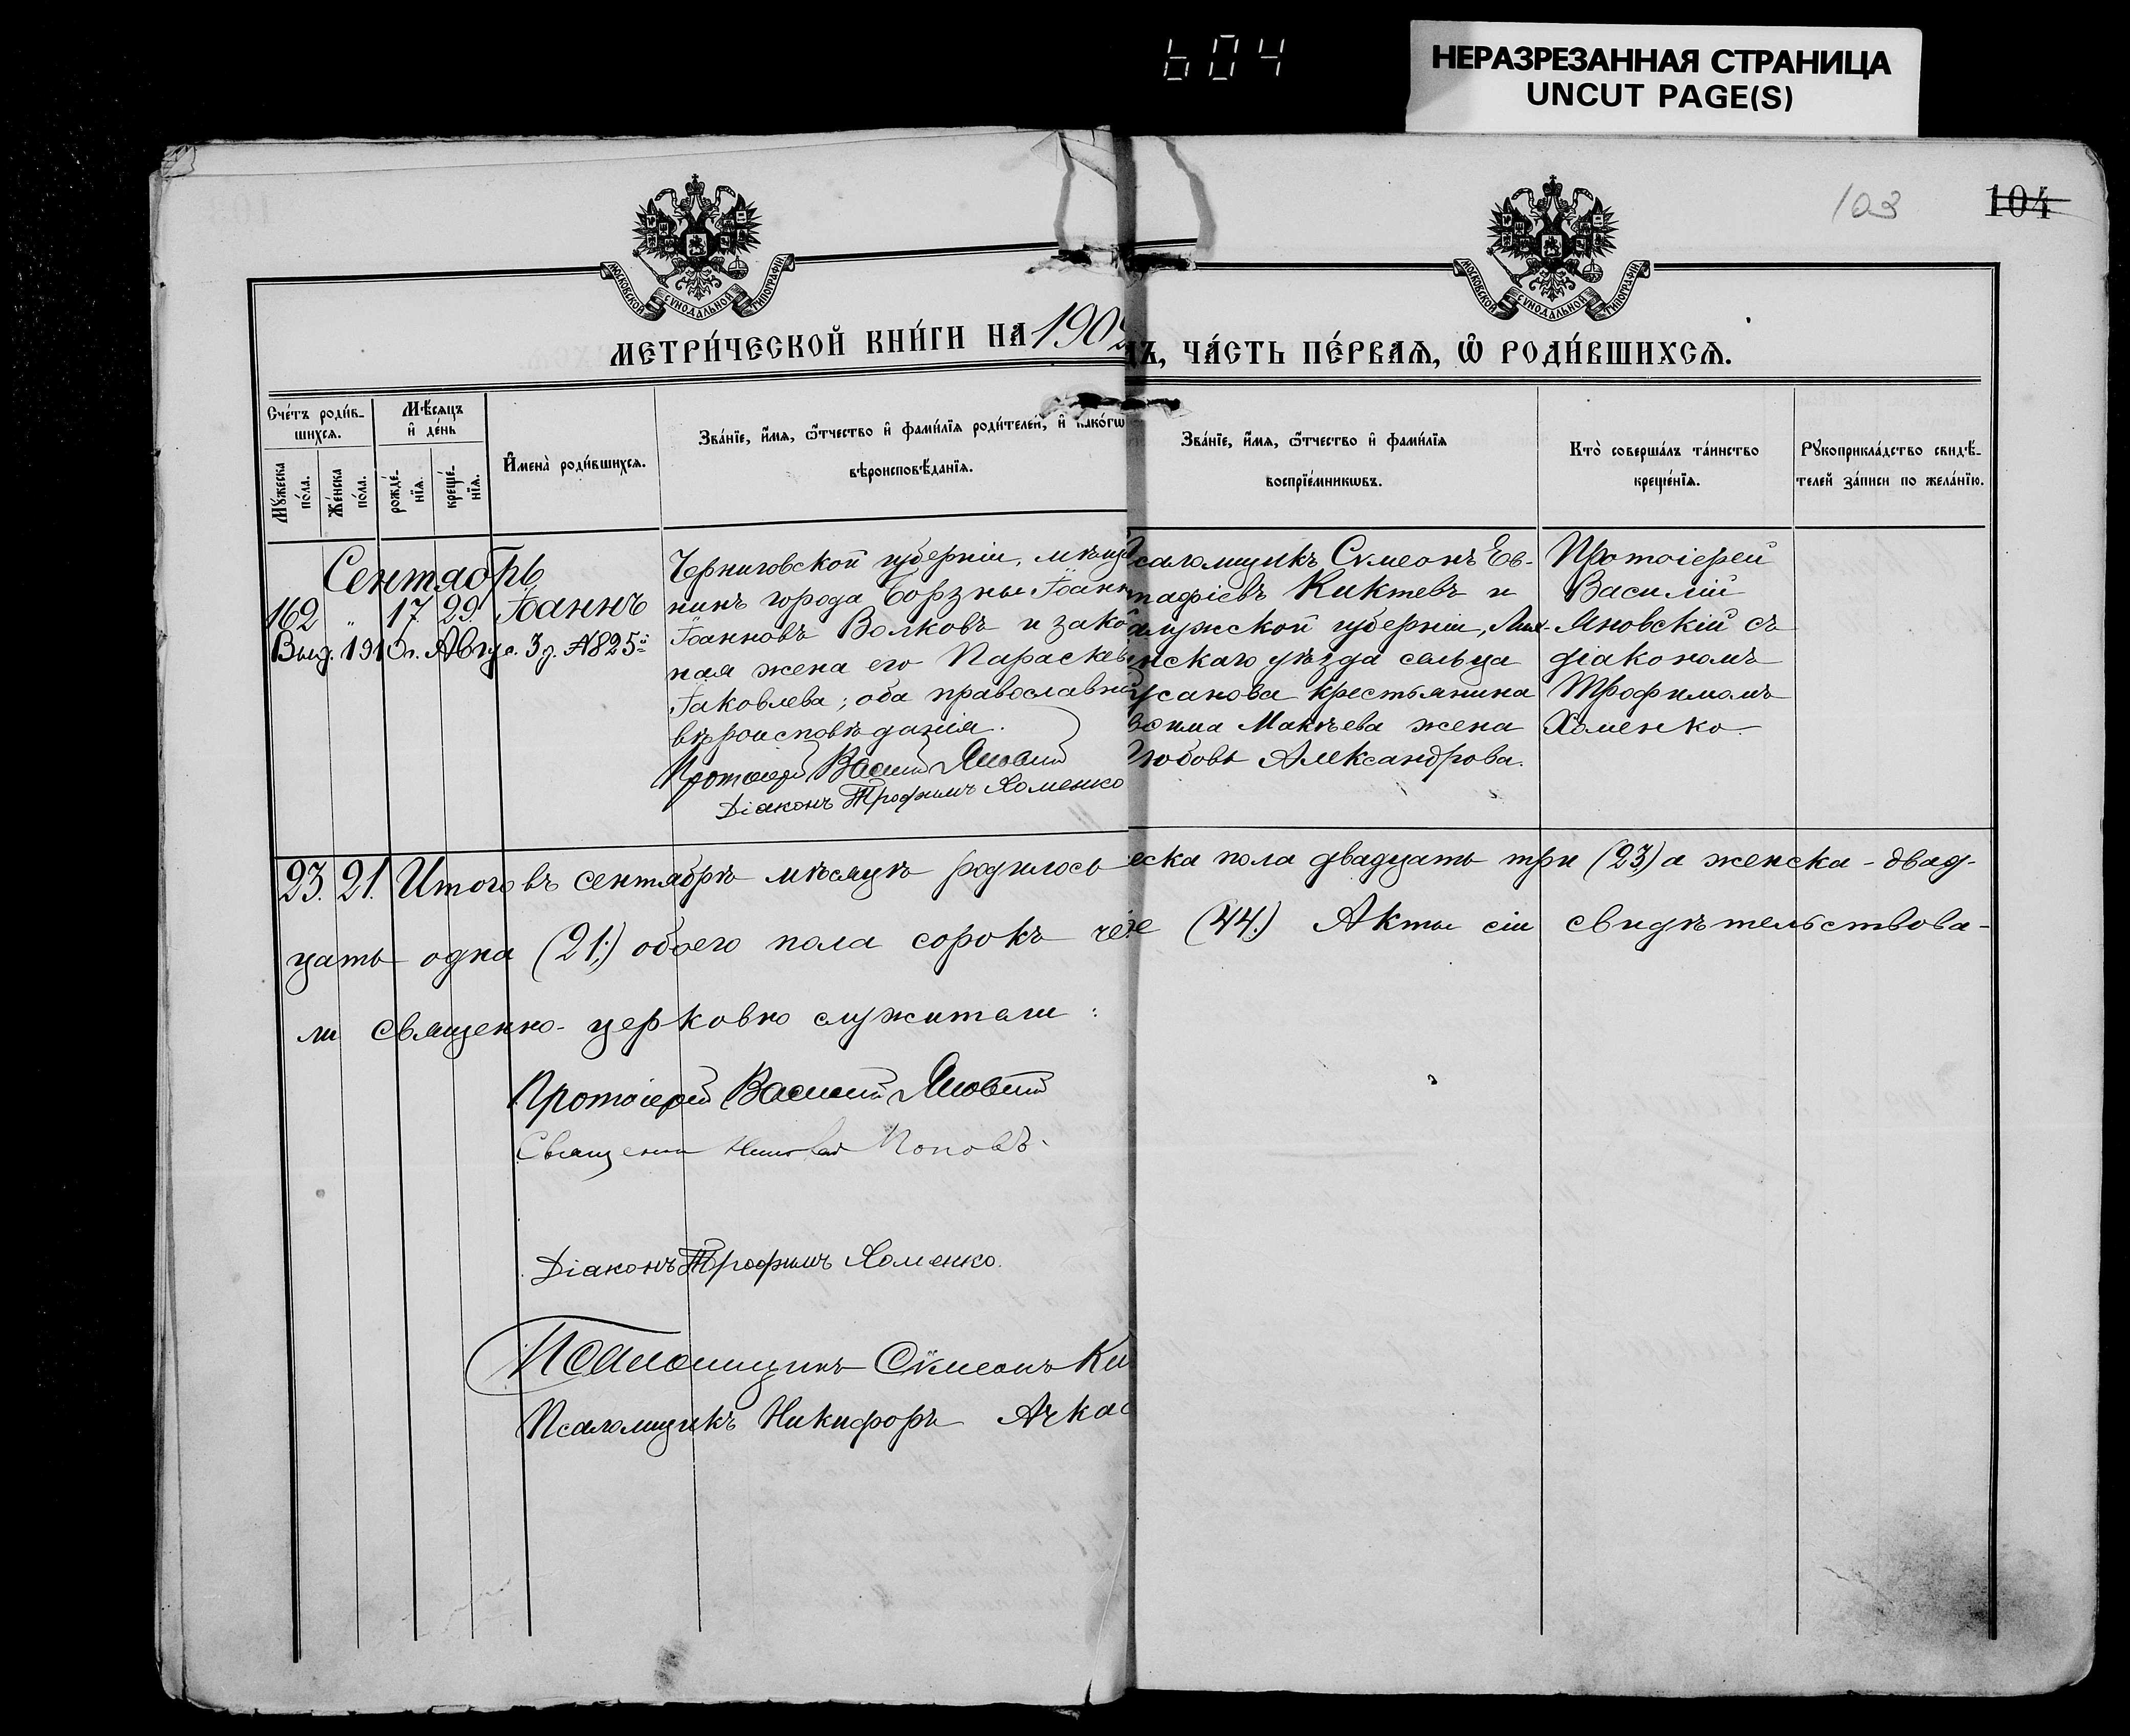 604
НЕРАЗРЕЗАННАЯ СТРАНИЦА
UNCUT PAGE(S)
103
104
МОСКОВСКОЙ СѴНОДАЛЬНОЙ ТИПОГРАФІИ
МОСКОВСКОЙ СѴНОДАЛЬНОЙ ТИПОГРАФІИ
МЕТРИ́ЧЕСКОЙ КНИ́ГИ НА 190
ЧА́СТЬ ПЕ́РВАЯ, Ѽ РОДИ́ВШИХСЯ.
Сче́тъ роди́в-
шихся.
Мꙋ́жеска по́ла.
Же́нска по́ла.
Мѣ́сяцъ
и҆ де́нь
рожде́-
нїя.
креще́-
нїя.
И҆мена̀ роди́вшихся.
Зва́нїе, и҆́мя, ѻ҆́тчество и҆ фами́лїя роди́телей, и҆ како́гѡ
вѣроисповѣ́данїя.
Зва́нїе, и҆́мя, ѻ҆́тчество и҆ фами́лїя
воспрїе́мникѡвъ.
Кто̀ соверша́лъ та́инство
креще́нїя.
Рꙋкоприкла́дство свидѣ́-
телей за́писи по жела́нїю.
Сентябрь
162 " 17. 29. Іоаннъ
Выд. 1910 г. Авгус. 3 д. №825й
Черниговской губерніи, мѣща
нинъ города Борзны Іоанн
Іоанновъ Волковъ и зако
ная жена его Параскев
Іаковлева; оба православна
вѣроисповѣданія.
Протоіерей Василій Яновскій
Діаконъ Трофимъ Хоменко
саломщикъ Сѵмеонъ Ев-
тафіевъ Киктевъ и
лужской губерніи, Лих-
нскаго уѣзда сельца
усанова крестьянина
сима Макѣева жена
Любовь Александрова.
Протоіерей
Василій
Яновскій съ
діакономъ
Трофимомъ
Хоменко.
23. 21. Итого въ сентябрѣ мѣсяцѣ родилось еска пола двадцать три (23) а женска - двад-
цать одна (21;) обоего пола сорокъ че е (44.) Акты сіи свидѣтельствова-
ли священно-церковно служители:
Протоіерей Василій Яновскій
Священникъ Николай Поповъ.
Діаконъ Трофимъ Хоменко.
Псаломщикъ Сѵмеонъ Ки
Псаломщикъ Никифоръ Ачкас